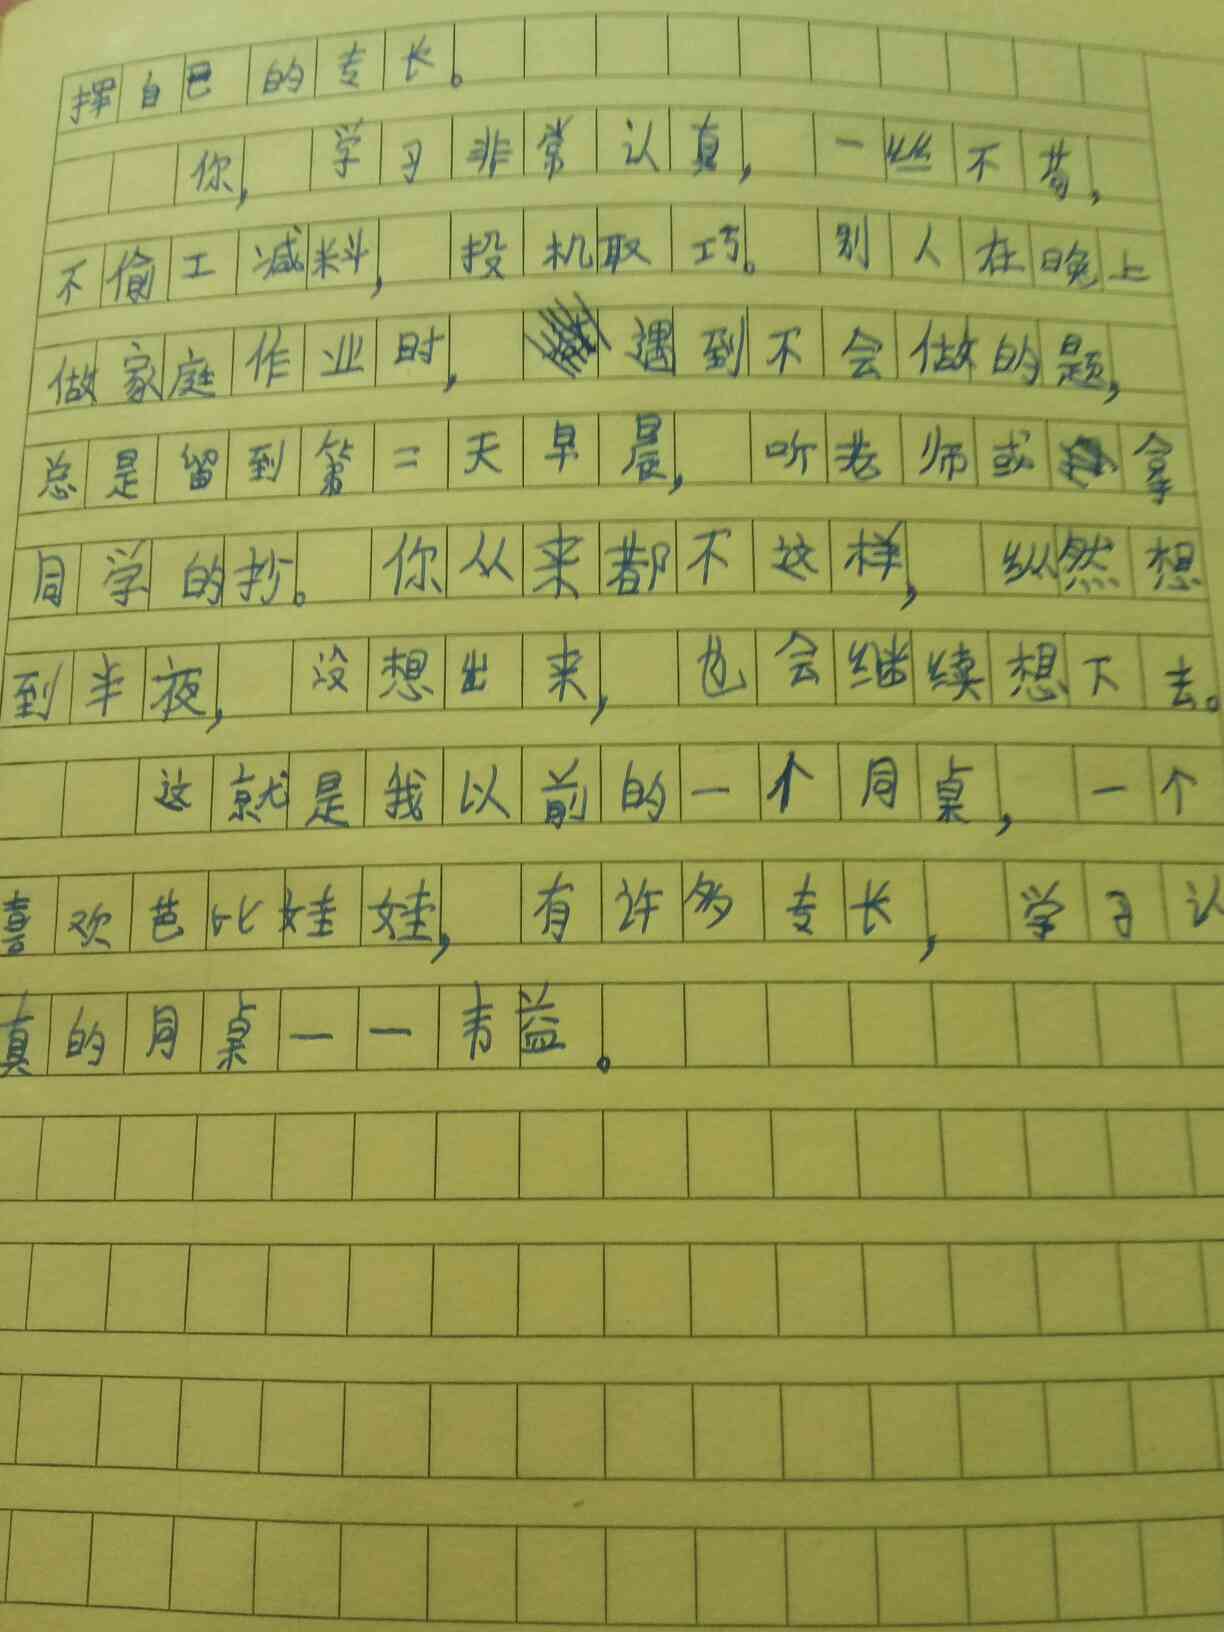 挥自己的专长。
你，学习非常认真，一丝不苟，
不偷工减料，投机取巧。别人在晚上
做家庭作业时，遇到不会做的题，
总是留到第二天早晨，听老师或拿
同学的抄。你从来都不这样，纵然想
到半夜，没想出来，也会继续想下去。
这就是我以前的一个同桌，一个
喜欢芭比娃娃，有许多专长，学习认
真的同桌——韦益。